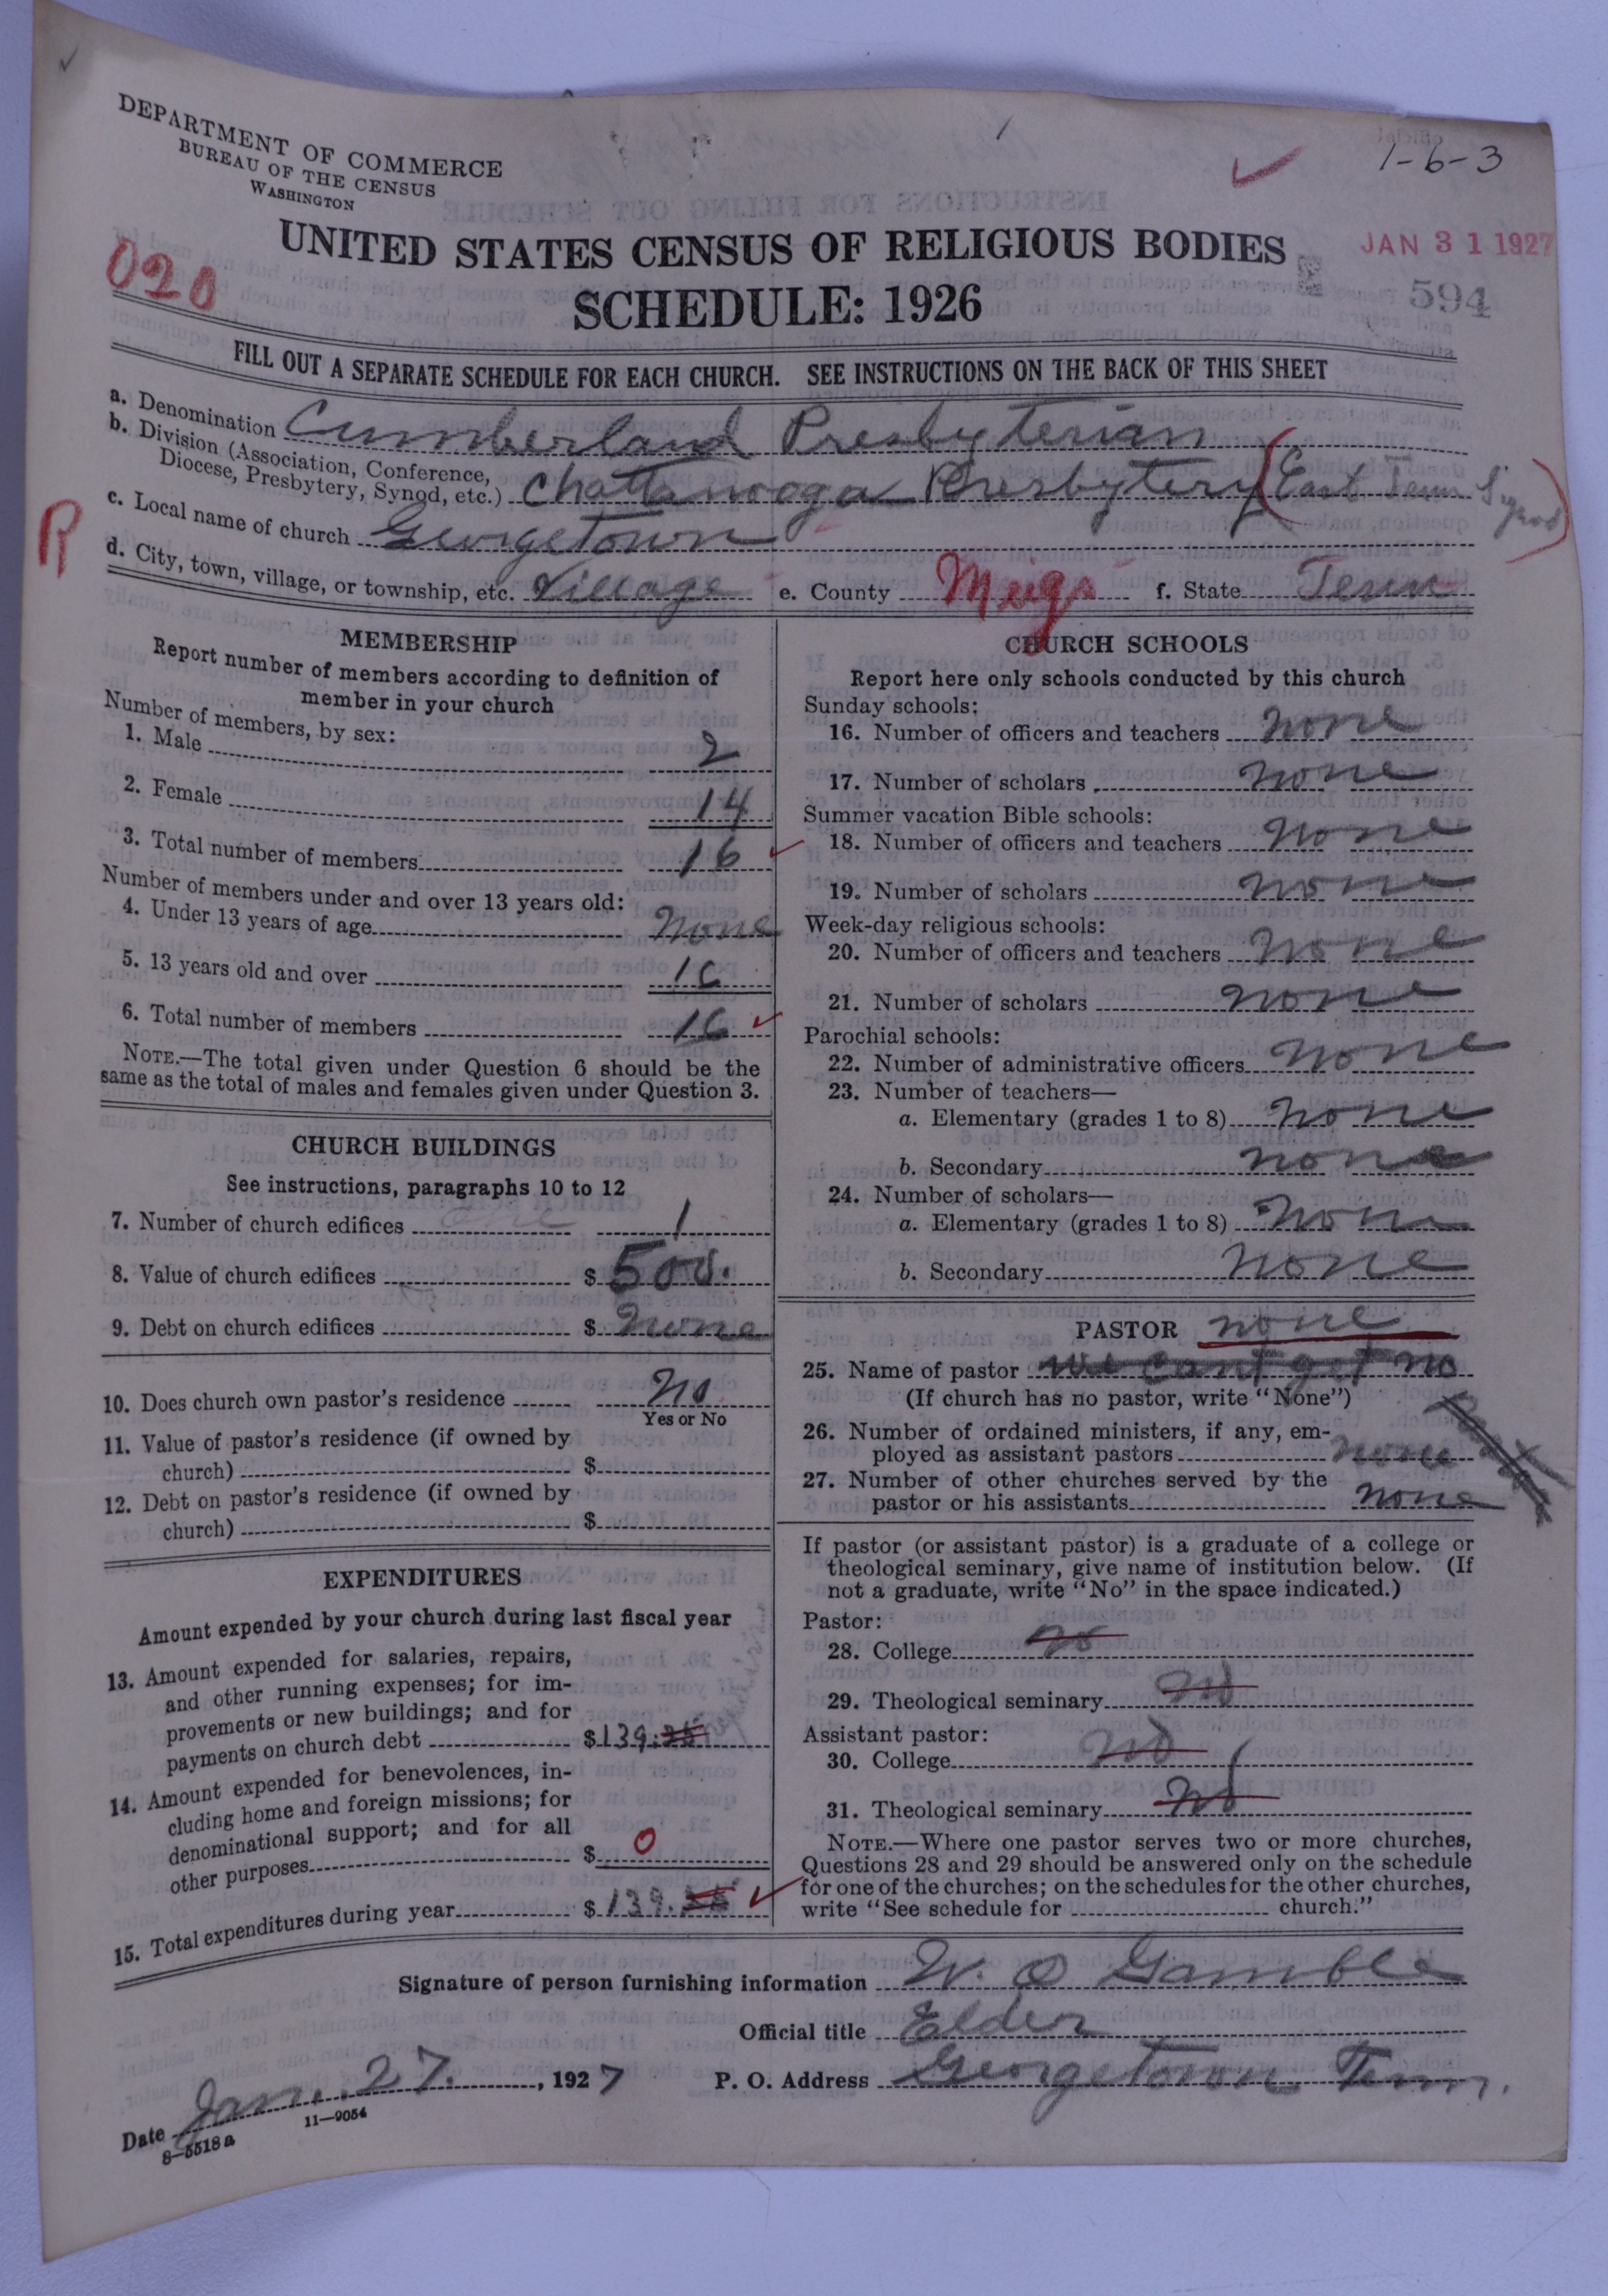 1-6-3
DEPARTMENT OF COMMERCE
BUREAU OF THE CENSUS
WASHINGTON
UNITED STATES CENSUS OF RELIGIOUS BODIES
JAN 31 1927
020
SCHEDULE: 1926
594
FILL OUT A SEPARATE SCHEDULE FOR EACH CHURCH. SEE INSTRUCTIONS ON THE BACK OF THIS SHEET
a. Denomination Cumberland Presbyterian
b. Division (Association, Conference,
Diocese, Presbytery, Synod, etc.) Chattanooga Presbytery (East Tenn Synod)
R
c. Local name of church Georgetown
d. City, town, village, or township, etc. Village e. County Meigs f. State Tenn
MEMBERSHIP
Report number of members according to definition of
member in your church
Number of members, by sex:
1. Male 2
2. Female 14
3. Total number of members 16
Number of members under and over 13 years old:
4. Under 13 years of age none
5. 13 years old and over 16
6. Total number of members 16
NOTE.—The total given under Question 6 should be the
same as the total of males and females given under Question 3.
CHURCH BUILDINGS
See instructions, paragraphs 10 to 12
7. Number of church edifices one 1
8. Value of church edifices $ 500.
9. Debt on church edifices $ none
10. Does church own pastor's residence no
Yes or No
11. Value of pastor's residence (if owned by
church) $
12. Debt on pastor's residence (if owned by
church) $
EXPENDITURES
Amount expended by your church during last fiscal year
13. Amount expended for salaries, repairs,
and other running expenses; for im-
provements or new buildings; and for
payments on church debt $ 139.
14. Amount expended for benevolences, in-
cluding home and foreign missions; for
denominational support; and for all
other purposes $ 0
15. Total expenditures during year $ 139.
CHURCH SCHOOLS
Report here only schools conducted by this church
Sunday schools:
16. Number of officers and teachers none
17. Number of scholars none
Summer vacation Bible schools:
18. Number of officers and teachers none
19. Number of scholars none
Week-day religious schools:
20. Number of officers and teachers none
21. Number of scholars none
Parochial schools:
22. Number of administrative officers none
23. Number of teachers—
a. Elementary (grades 1 to 8) none
b. Secondary none
24. Number of scholars—
a. Elementary (grades 1 to 8) none
b. Secondary none
PASTOR none
25. Name of pastor we cant get no
(If church has no pastor, write "None")
26. Number of ordained ministers, if any, em-
ployed as assistant pastors none
27. Number of other churches served by the
pastor or his assistants none
If pastor (or assistant pastor) is a graduate of a college or
theological seminary, give name of institution below. (If
not a graduate, write "No" in the space indicated.)
Pastor:
28. College no
29. Theological seminary no
Assistant pastor:
30. College no
31. Theological seminary no
NOTE.—Where one pastor serves two or more churches,
Questions 28 and 29 should be answered only on the schedule
for one of the churches; on the schedules for the other churches,
write "See schedule for church."
Signature of person furnishing information W. O Gamble
Official title Elder
Date Jan. 27., 1927 P. O. Address Georgetown Tenn.
8-5518a 11-9054